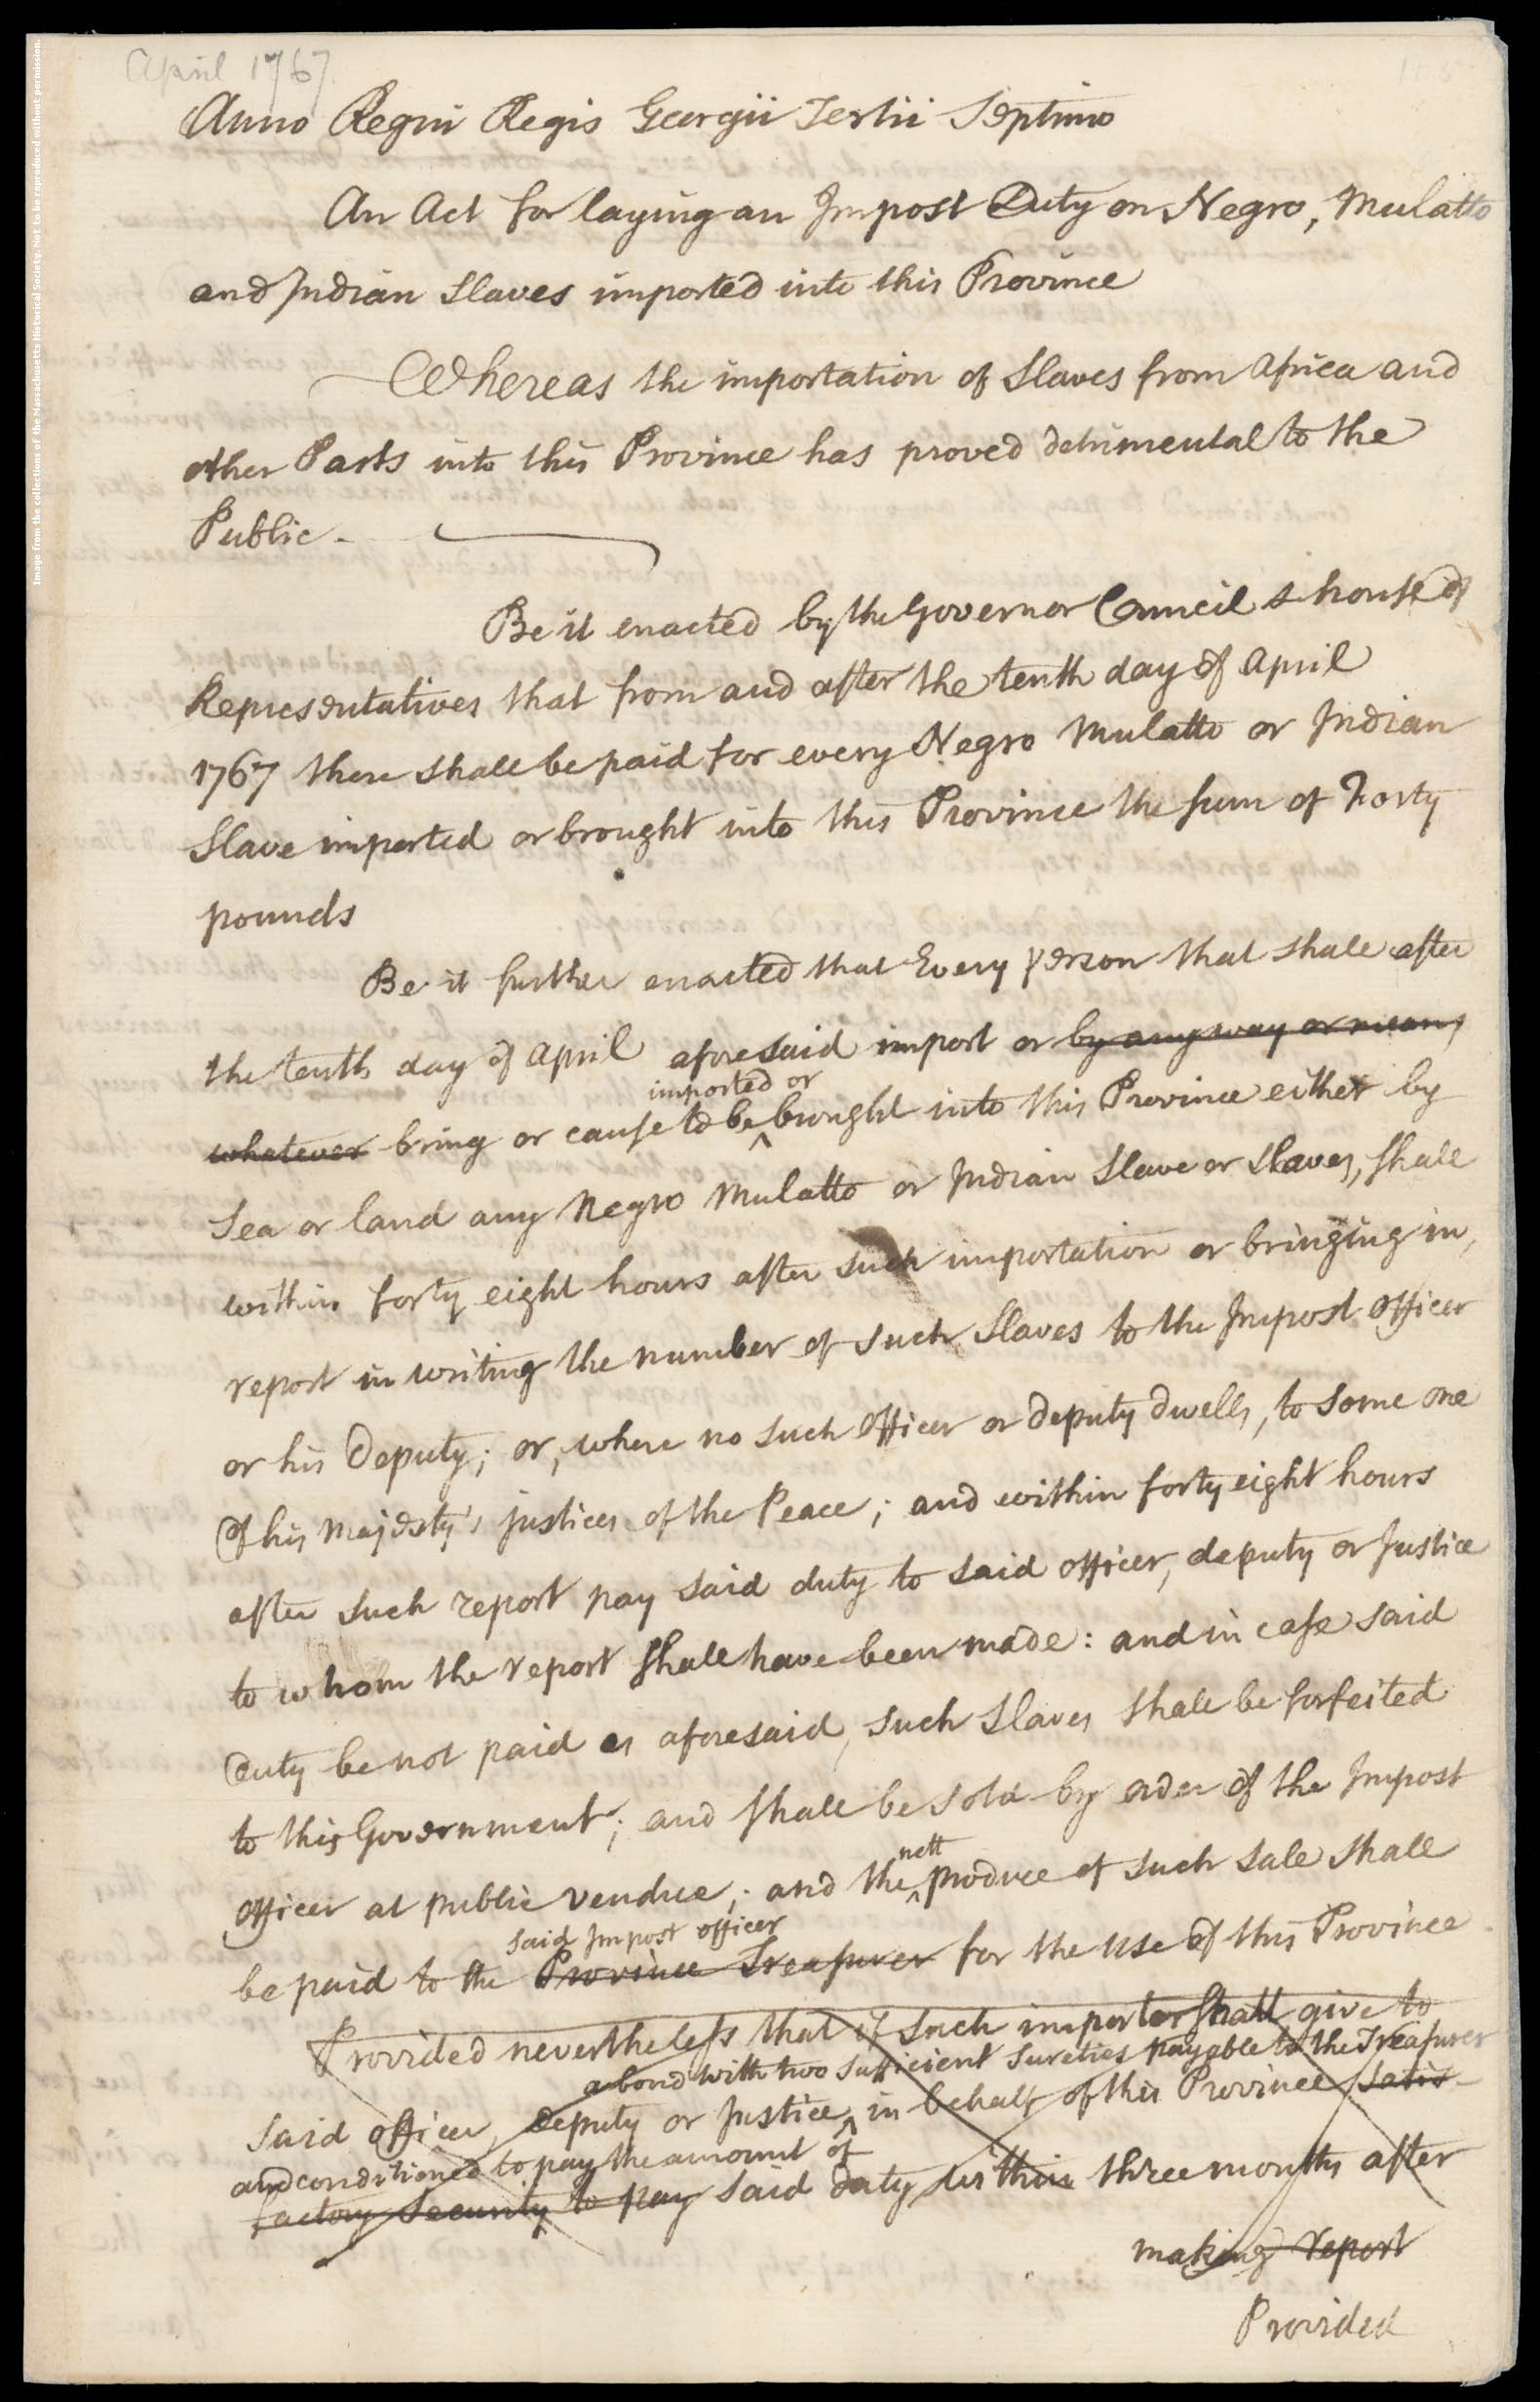 Image from the collections of the Massachusetts Historical Society. Not to be reproduced without permission.
April 1767.
Anno Regni Regis Georgii Tertii Septimo
An Act for laying an Impost Duty on Negro, Mulatto
and Indian Slaves imported into this Province
Whereas the importation of Slaves from Africa and
other Parts into this Province has proved detrimental to the
Public -
Be it enacted by the Governor Council & house of
Representatives that from and after the tenth day of April
1767 there shall be paid for every Negro Mulatto or Indian
Slave imported or brought into this Province the sum of Forty
pounds
Be it further enacted that Every person that shall after
the tenth day of April aforesaid import or by any way or means
imported or
whatever bring or cause to be ^ brought into this Province either by
Sea or land any Negro Mulatto or Indian Slave or Slaves, shall
within forty eight hours after such importation or bringing in,
report in writing the number of such Slaves to the Impost Officer
or his Deputy; or, where no such Officer or deputy dwells, to some one
Of his Majesty's justices of the Peace; and within forty eight hours
after such report pay said duty to said officer, deputy or Justice
to whom the report shall have been made: and in case said
Duty be not paid as aforesaid, such Slaves shall be forfeited
to this Government; and shall be sold by order of the Impost
nett
Officer at public Vendue; and the ^ produce of such sale shall
said Impost officer
be paid to the Province Treasurer for the Use of this Province
Provided nevertheless that if such importer shall give to
a bond with two sufficient sureties payable to the Treasurer
said officer, deputy or Justice ^ in behalf of this Province satis-
and conditioned to pay the amount of
factory security to pay said duty within three months after
making report
Provided